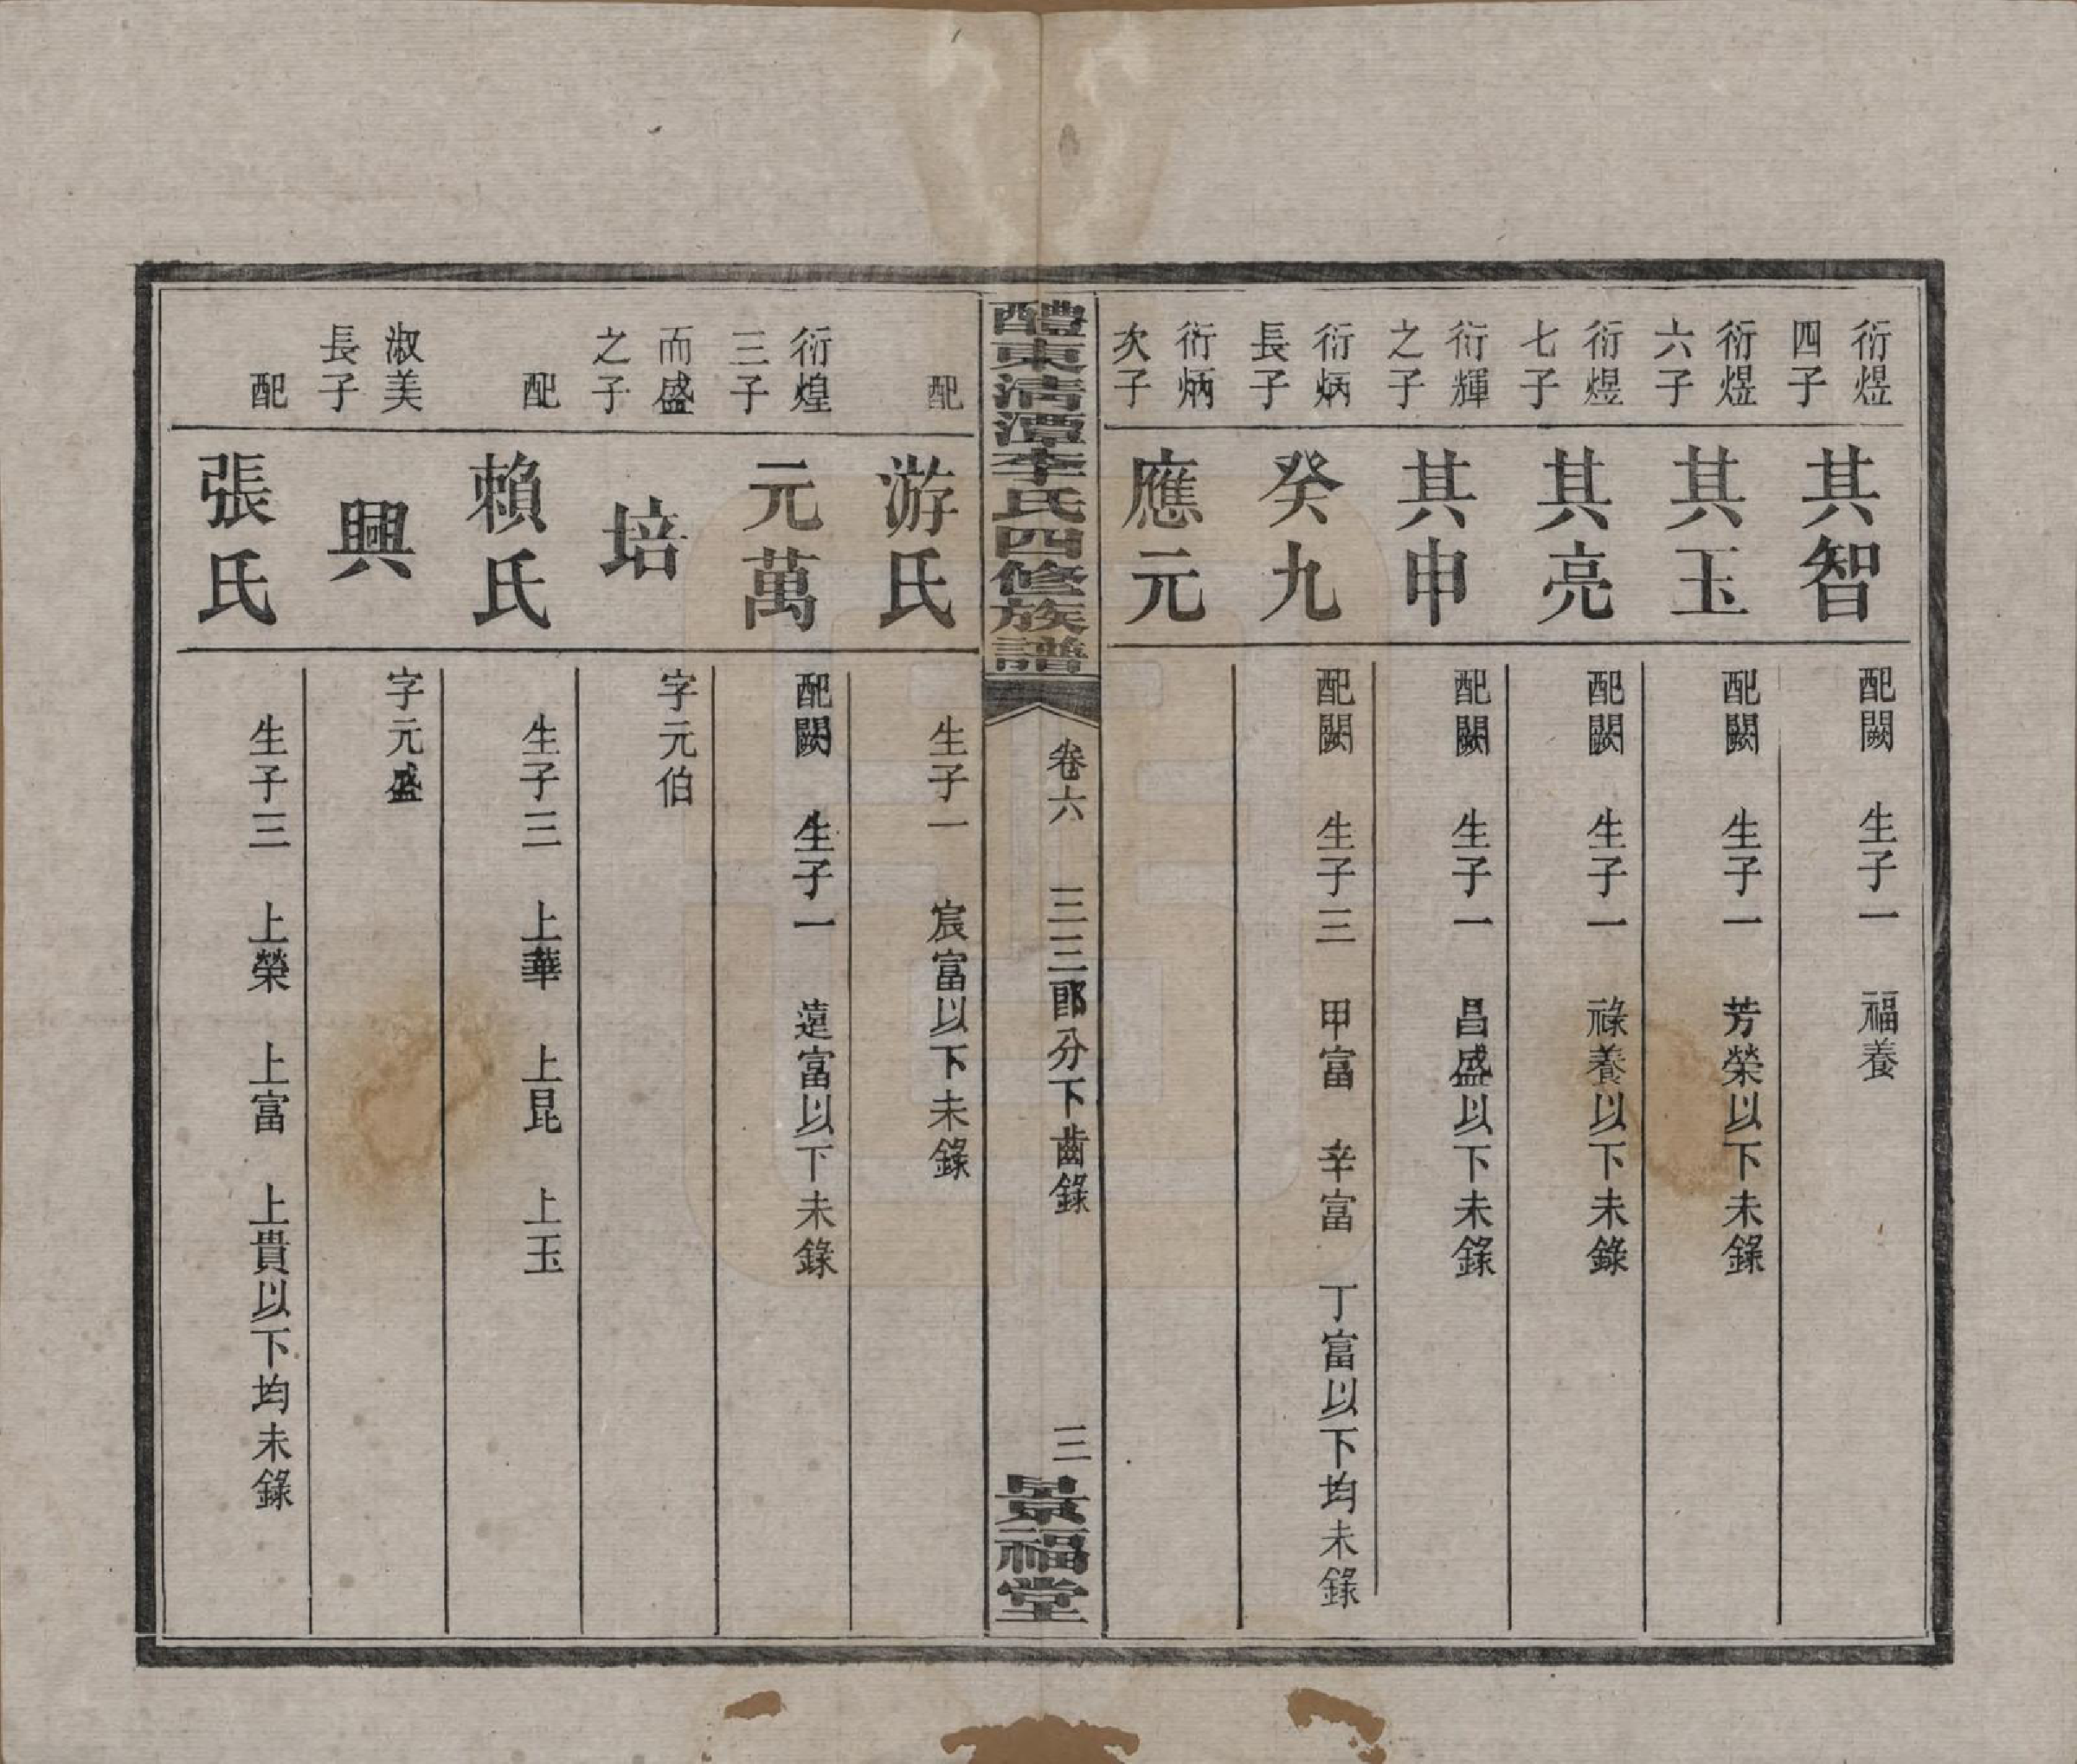 衍煜四子
其智
配闕　生子一　福養
衍煜六子
其玉
配闕　生子一　芳榮以下未錄
衍煜七子
其亮
配闕　生子一　祿養以下未錄
衍輝之子
其申
配闕　生子一　昌盛以下未錄
衍炳長子
癸九
配闕　生子三　甲富　辛富　丁富以下均未錄
衍炳次子
應元
醴東清潭李氏四修族譜
卷六　三三郎分下齒錄　三
景福堂
配
游氏
生子一　宸富以下未錄
衍煌三子
元萬
配闕　生子一　遠富以下未錄
而盛之子
培
字元伯
配
賴氏
生子三　上華　上昆　上玉
淑美長子
興
字元盛
配
張氏
生子三　上榮　上富　上貴以下均未錄